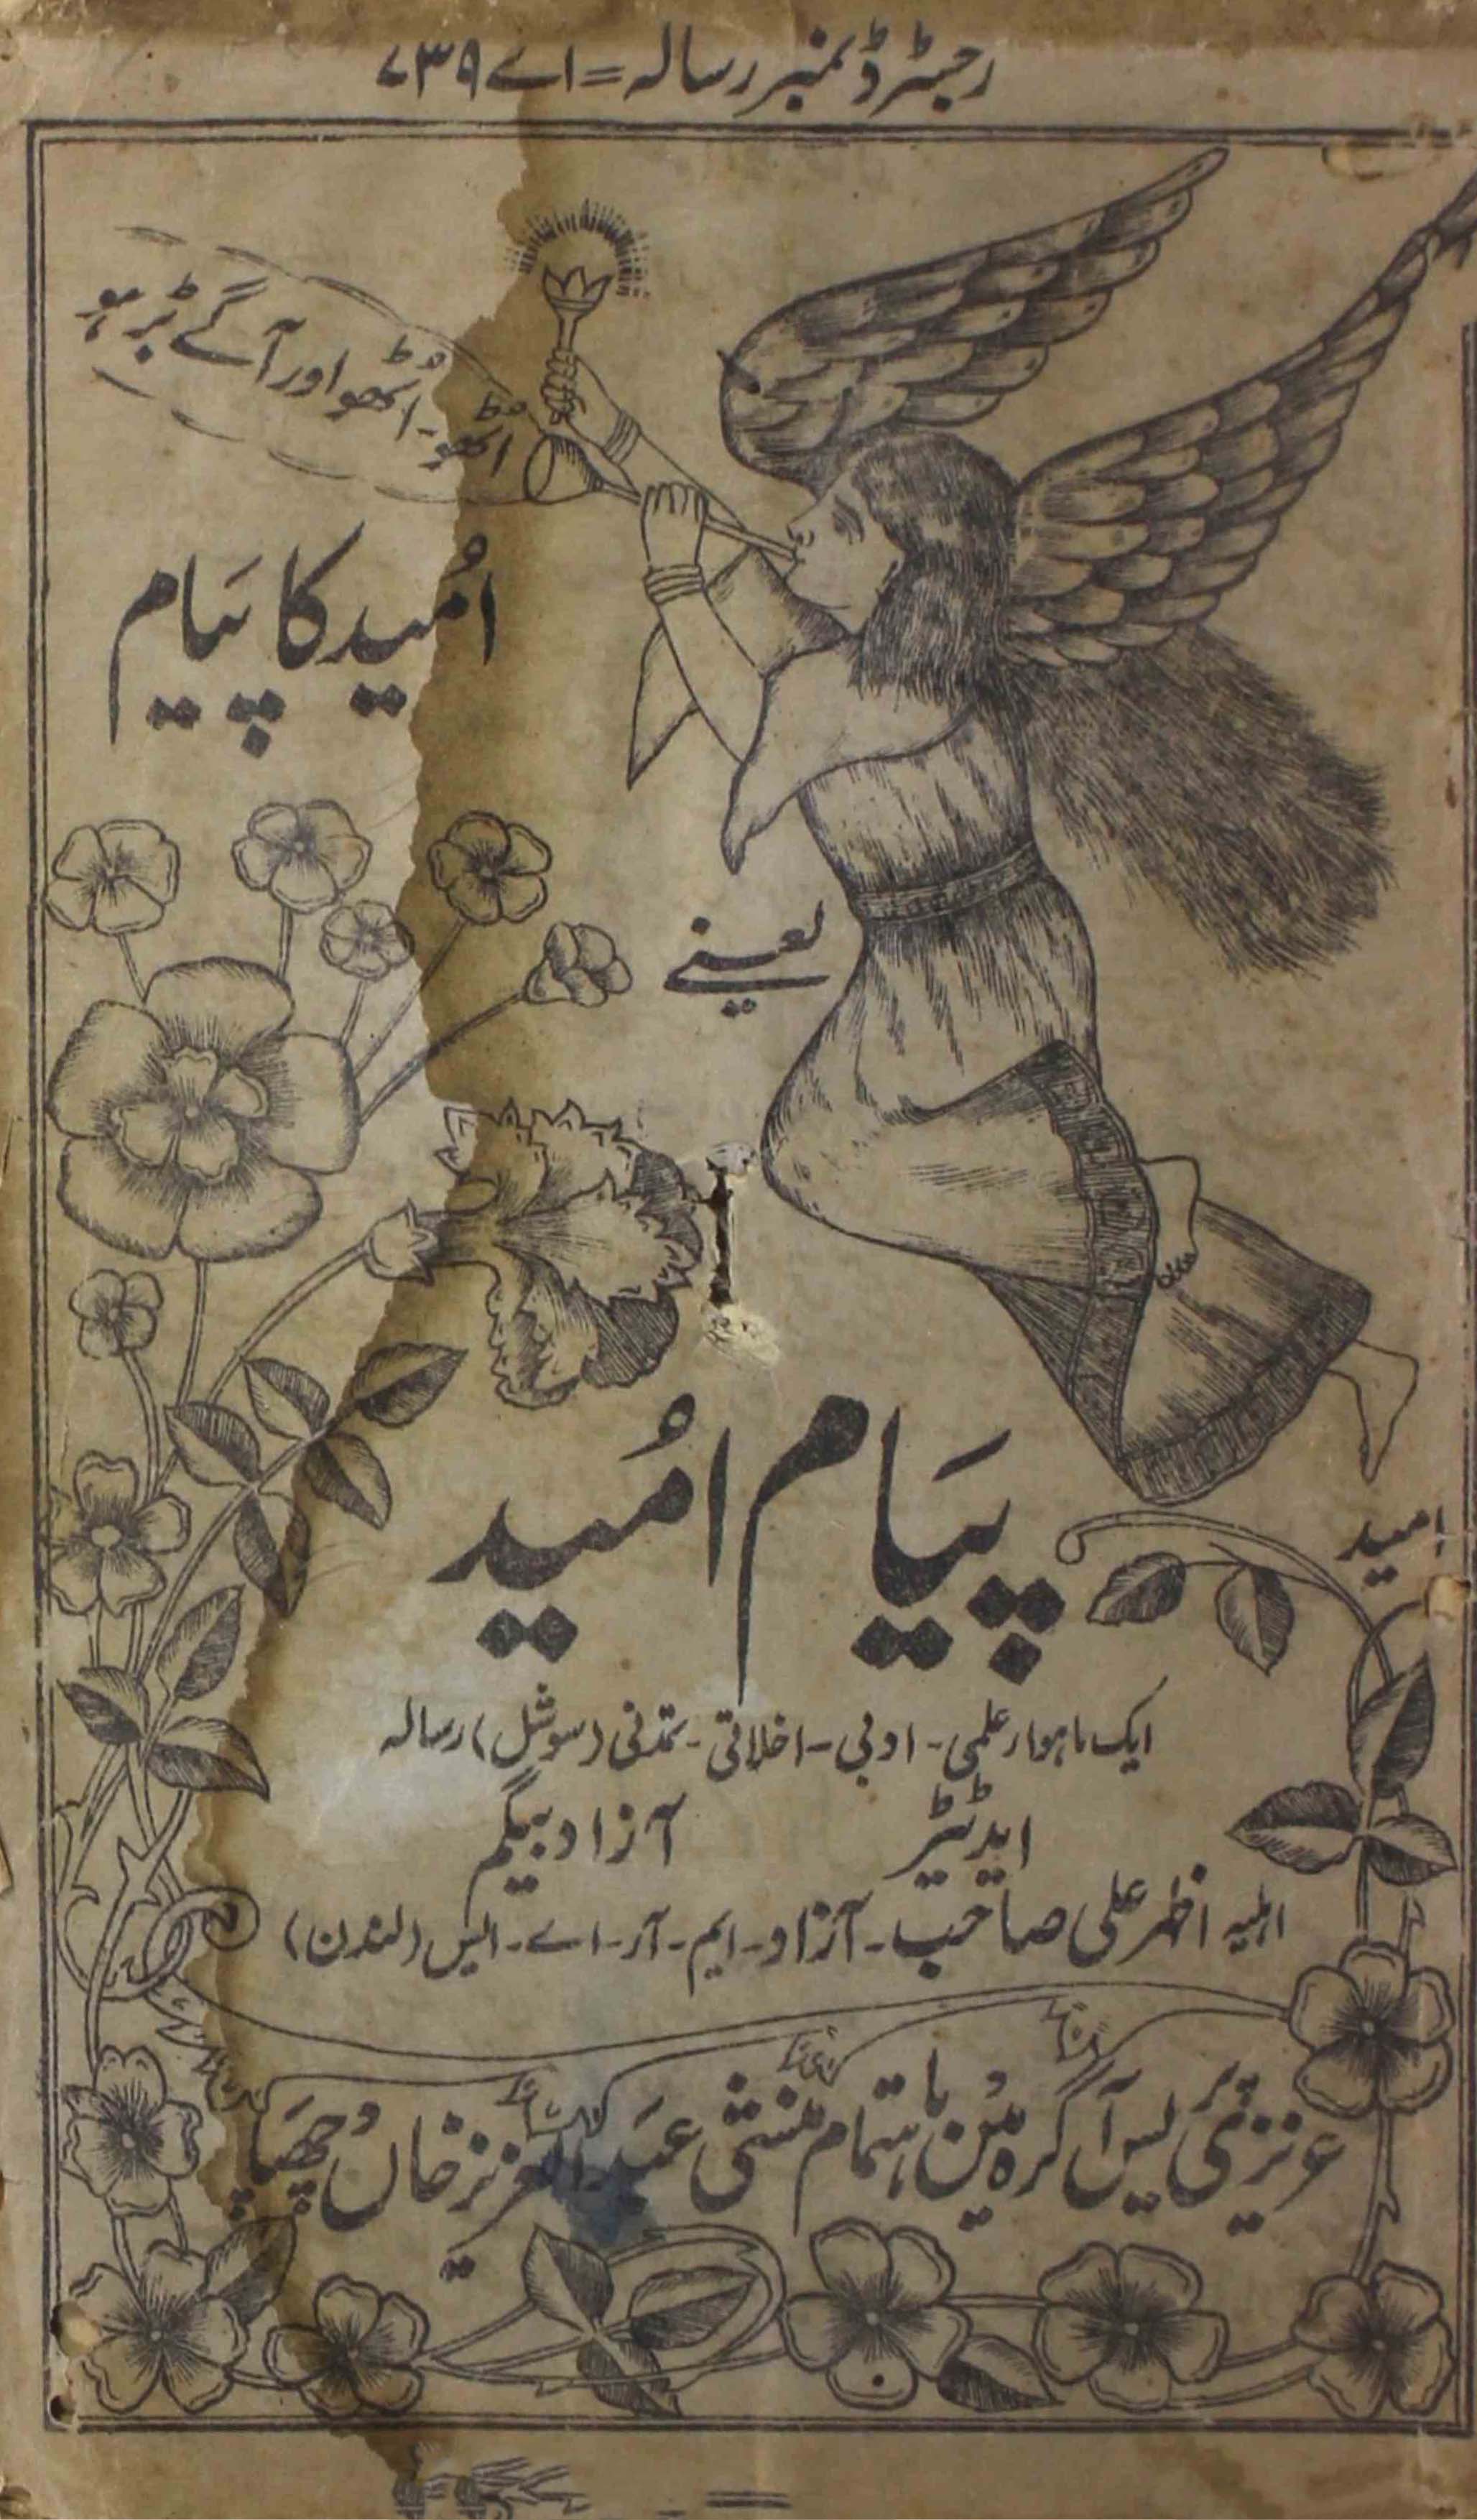 رجسٹرڈ نمبر رسالہ = اے ۷۳۹
اٹھو۔ اٹھو اور آگے بڑہو
اُمید کا پیام
یعنے
پیام اُمید
امید
ایک ماہوار علمی۔ ادبی۔ اخلاقی۔ تمدنی (سوشل) رسالہ
ایڈیٹر آزاد بیگم
اہلیہ اظہر علی صاحب۔ آزاد۔ ایم۔ آر۔ اے۔ ایس (لندن)
عزیزی پریس آگرہ مین باہتمام منشی عبدالعزیز خاں چھپا